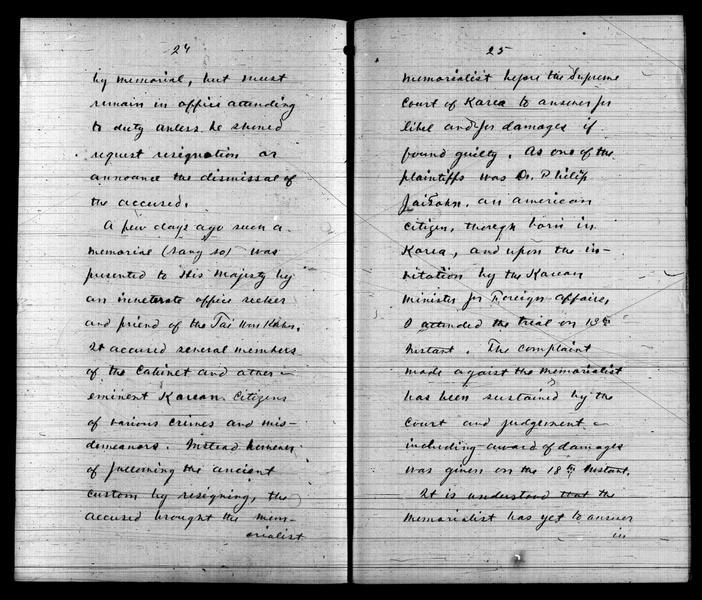 24
by memorial, but must
remain in office attending
to duty unless he should
request resignation or
announce the dismissal of
the accused.
A few days ago such a
memorial (sang so) was
presented to His Majesty by
an inveterate office seeker
and friend of the Tai Won Kahn.
It accused several members
of the Cabinet and other
eminent Korean Citizens
of various crimes and mis-
demeanors. Instead however
of following the ancient
custom by resigning, the
accused brought the mem-
orialist
25
memorialist before the Supreme
Court of Korea to answer for
libel and for damages if
found guilty. As one of the
plaintiffs was Dr. Philip
Jaisohn, an american
citizen, though born in
Korea, and upon the in-
vitation by the Korean
Minister for Foreign affairs,
I attended the trial on 13th
Instant. The complaint
made against the memorialist
has been sustained by the
Court and judgement
including award of damages
was given on the 18th Instant.
It is understood that the
memorialist has yet to answer
in